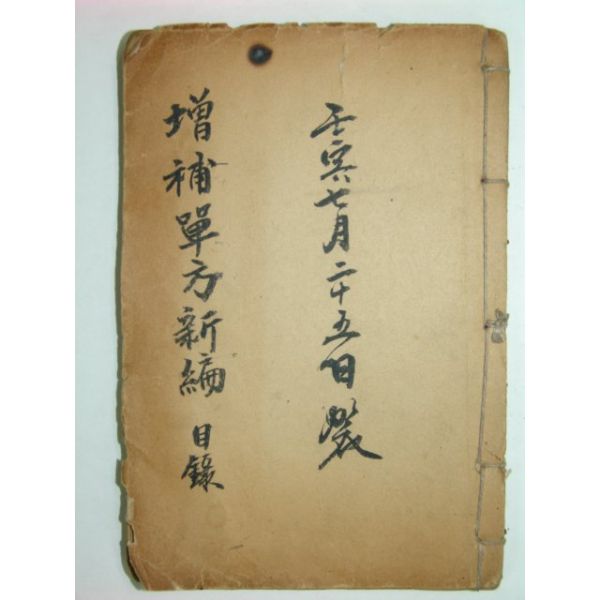 壬寅七月二十五日裝
增補單方新編 目錄